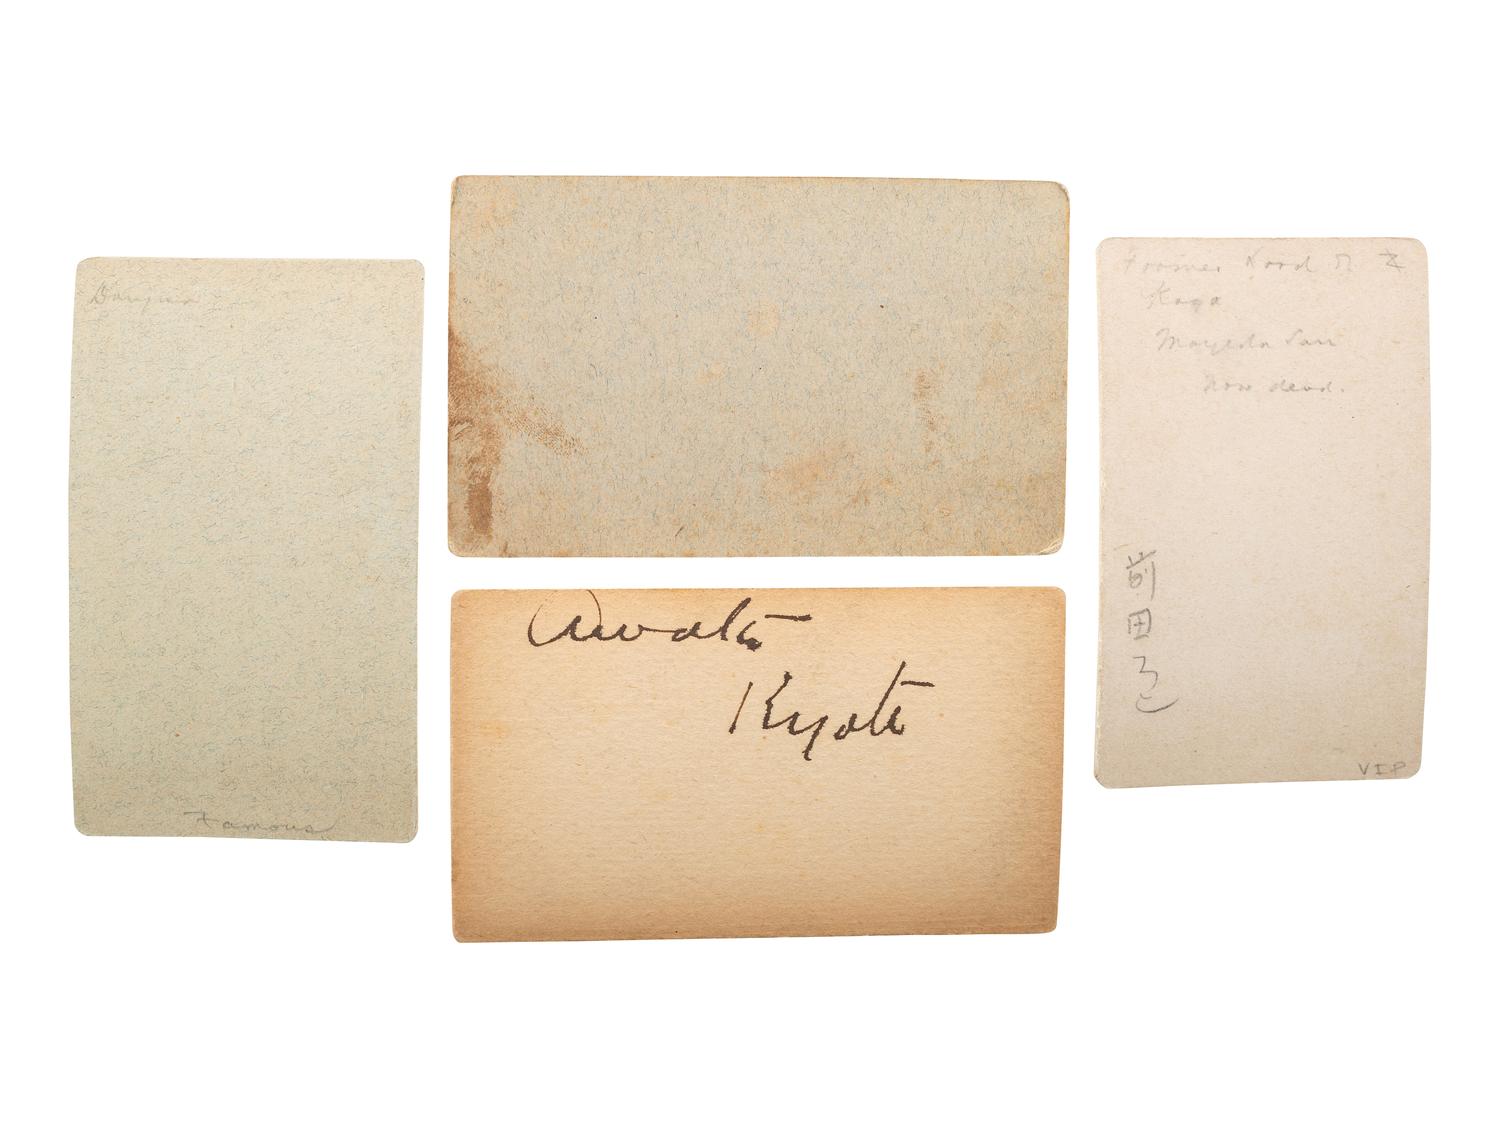 Famous
Awata
Kyoto
Former Lord of Z
Kaga
Mayeda San
now dead.
前
田
VIP